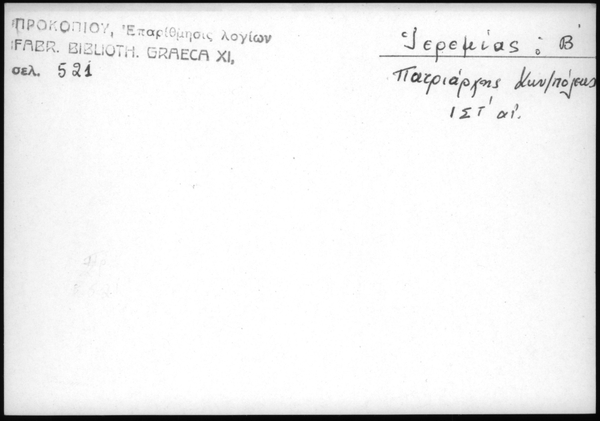 ΠΡΟΚΟΠΙΟΥ, Ἐπαρίθμησις λογίων
FABR. BIBLIOTH. GRAECA XI,
σελ. 521
Ἰερεμίας : Β΄
Πατριάρχης Κων/πόλεως
ΙΣΤ΄ αἰ.